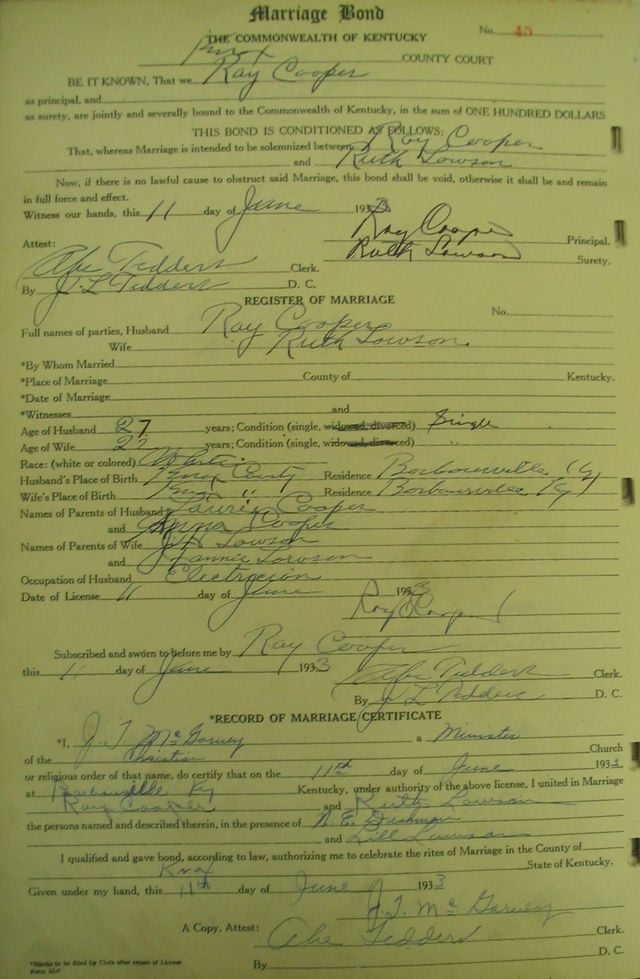 Marriage Bond
No. 45
THE COMMONWEALTH OF KENTUCKY
Knox COUNTY COURT
BE IT KNOWN, That we Ray Cooper
as principal, and
as surety, are jointly and severally bound to the Commonwealth of Kentucky, in the sum of ONE HUNDRED DOLLARS
THIS BOND IS CONDITIONED AS FOLLOWS:
That, whereas Marriage is intended to be solemnized between Ray Cooper
and Ruth Lawson
Now, if there is no lawful cause to obstruct said Marriage, this bond shall be void, otherwise it shall be and remain
in full force and effect.
Witness our hands, this 11 day of June 1933
Ray Cooper Principal.
Attest: Ruth Lawson Surety.
Abe Tedders Clerk.
By J. L. Tedders D. C.
REGISTER OF MARRIAGE
No.
Full names of parties, Husband Ray Cooper
Wife Ruth Lawson
*By Whom Married
*Place of Marriage County of Kentucky.
*Date of Marriage
*Witnesses and
Age of Husband 27 years; Condition (single, widowed, divorced) Single
Age of Wife 22 years; Condition (single, widowed, divorced) "
Race: (white or colored) White
Husband's Place of Birth Knox County Residence Barbourville, Ky
Wife's Place of Birth Knox " Residence Barbourville, Ky
Names of Parents of Husband Cooper
and Cooper
Names of Parents of Wife Lawson
and Fannie Lawson
Occupation of Husband Electricion
Date of License 11 day of June 1933
Ray Cooper
Subscribed and sworn to before me by Ray Cooper
this 11 day of June 1933
Abe Tedders Clerk.
By J L Tedders D. C.
*RECORD OF MARRIAGE CERTIFICATE
*I, J. T. McGarvey a Minister
of the Christian Church
or religious order of that name, do certify that on the 11th day of June 1933
at Barbourville Ky Kentucky, under authority of the above license, I united in Marriage
Ray Cooper and Ruth Lawson
the persons named and described therein, in the presence of N. E. Dishman
and Lill Lawson
I qualified and gave bond, according to law, authorizing me to celebrate the rites of Marriage in the County of
Knox State of Kentucky.
Given under my hand, this 11th day of June 1933
J. T. McGarvey
A Copy, Attest: Abe Tedders Clerk.
By D. C.
*Blanks to be filled by Clerk after return of License